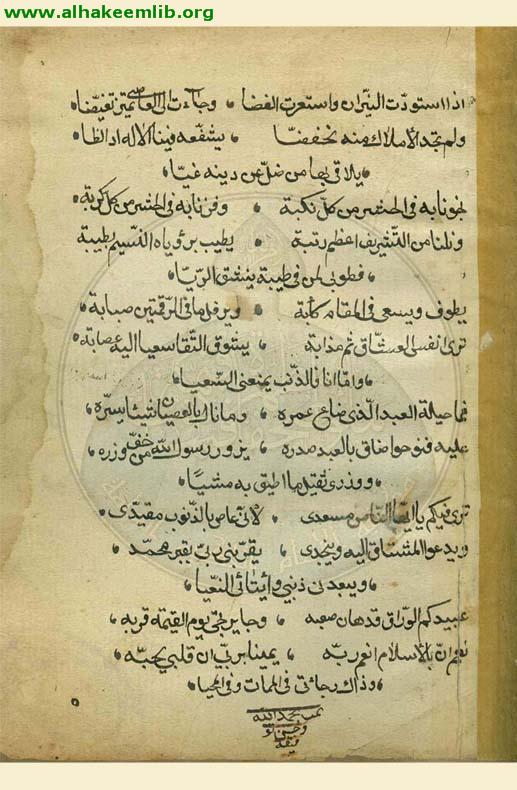 www.alhakeemlib.org
اذا استودت النيران واستعرت الفضا وجاءت الى العاصي تغيضا
ولم تجد الأملاك منه تخفضا يشفعه فينا الاله اذا
يلاقي بها من ضل عن دينه غيا
نجونا به في الحشر من كل نكبة وفزنا به في الحشر من كل كربة
ونلنا من التشريف اعظم رتبة يطيب برؤياه النسيم بطيبة
فطوبى لمن في طيبة ينشق الريا
يطوف ويسعى في المقام كآبة ويرفل ما في الرقمتين صبابة
ترى انفس العشاق ثم مذابة يسوق التقا سعيا اليه عصابة
واما انا فالذنب يمنعني السعيا
فما حيلة العبد الذي ضاع عمره وما نال بالعصيان شيئا يسره
عليه فنوحوا ضاق بالعبد صدره يزور رسول الله من خف وزره
ووزري ثقيل ما اطيق به مشيا
ترى فيكم يا ايها الناس مسعدى لأني عاص بالذنوب مقيدى
ويدعو المشتاق اليه وينجدى يقربني ربي بقبر محمد
ويبعد عن ذنبي
عبيدكم الوراق قد هان صعبه وجا يرتجى يوم القيمة قربه
نعم ان بالأسلام انعم ربه يمينا بربي ان قلبي يحبه
وذاك رجائي في الممات وفي المحيا
تمت بحمد الله